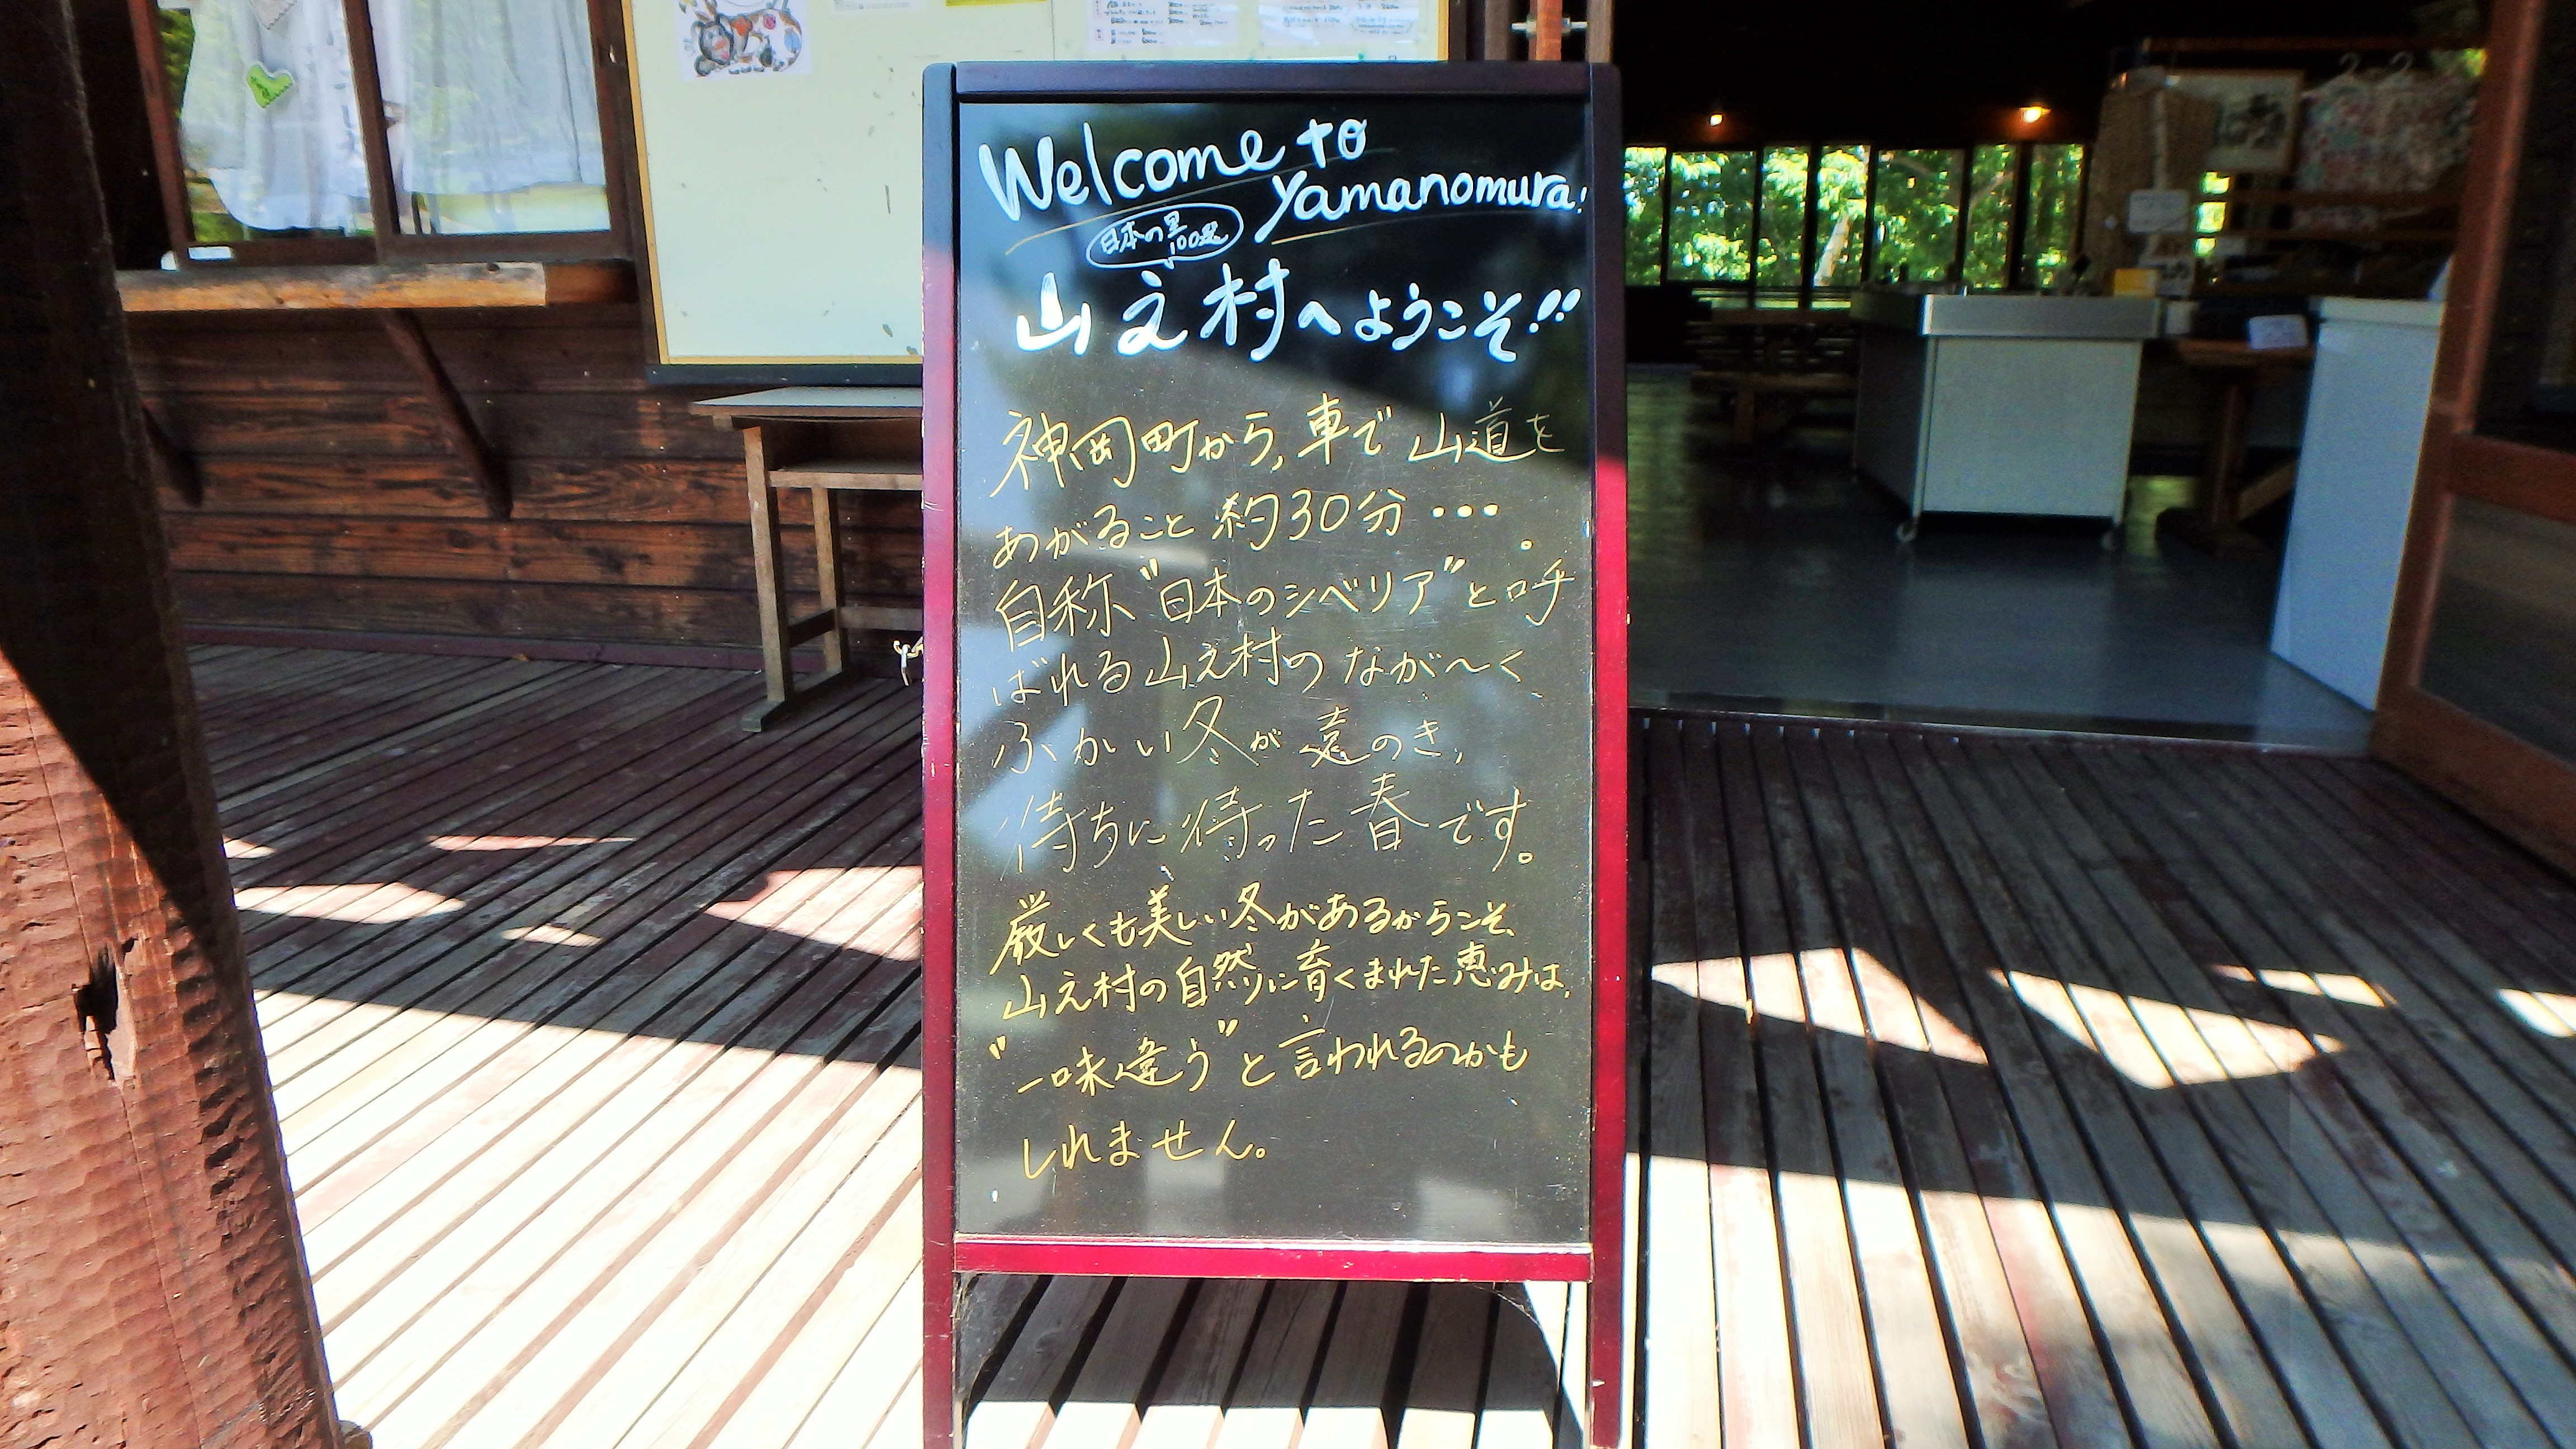 Welcome to
Yamanomura!
日本の里
100選
山之村へようこそ!!
神岡町から,車で山道を
あがること約30分・・・。
自称"日本のシベリア"と呼
ばれる山之村のなが〜く
ふかい冬が遠のき,
待ちに待った春です。
厳しくも美しい冬があるからこそ、
山之村の自然に育くまれた恵みは,
"一味違う"と言われるのかも
しれません。